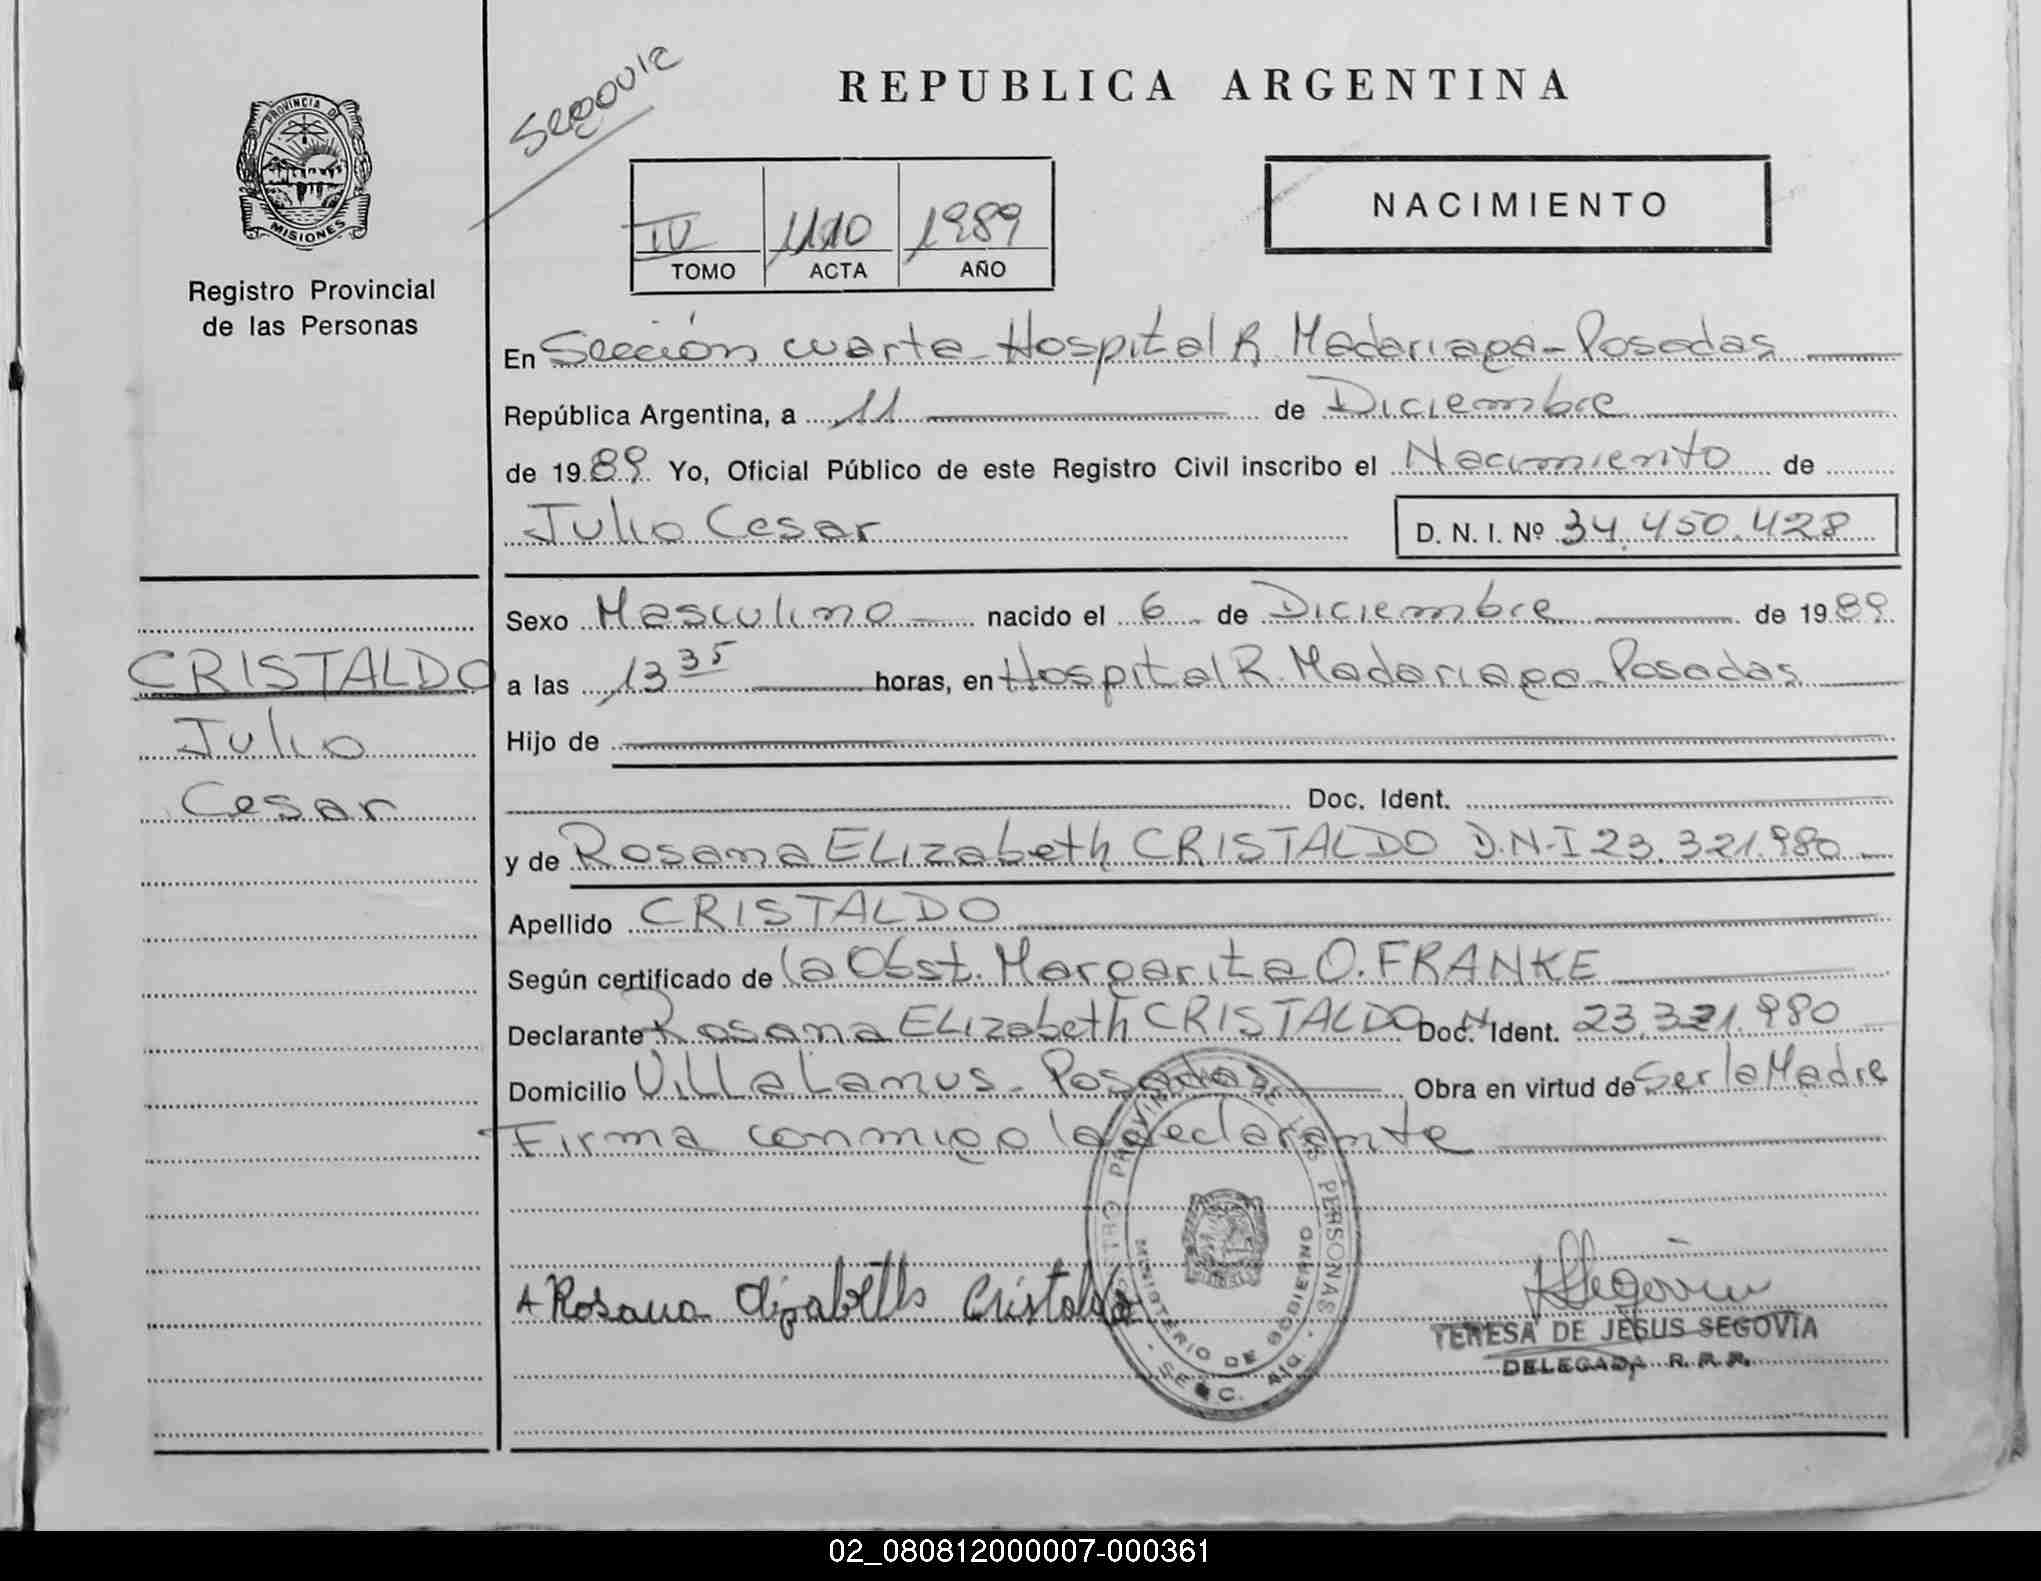 Segovia
REPUBLICA ARGENTINA
PROVINCIA DE
MISIONES
Registro Provincial
de las Personas
IV 1110 1989
TOMO ACTA AÑO
NACIMIENTO
En Sección cuarta - Hospital R. Madariaga - Posadas
República Argentina, a 11 de Diciembre
de 1989 Yo, Oficial Público de este Registro Civil inscribo el Nacimiento de
Julio Cesar D. N. I. Nº 34.450.428
Sexo Masculino nacido el 6 de Diciembre de 1989
CRISTALDO
a las 13 35 horas, en Hospital R. Madariaga - Posadas
Julio
Hijo de
Cesar
Doc. Ident.
y de Rosana ELizabeth CRISTALDO D.N.I 23.321.980
Apellido CRISTALDO
Según certificado de la Obst. Margarita O. FRANKE
Declarante Rosana ELizabeth CRISTALDO Doc. Ident. 23.321.980
Domicilio Villa Lanus - Posadas Obra en virtud de Ser la Madre
Firma conmigo la declarante
PROVINCIAL DE LAS PERSONAS
MINISTERIO DE GOBIERNO
Rosana Elizabeth Cristaldo
Segovia
TERESA DE JESUS SEGOVIA
DELEGADA R. P. P.
02_080812000007-000361